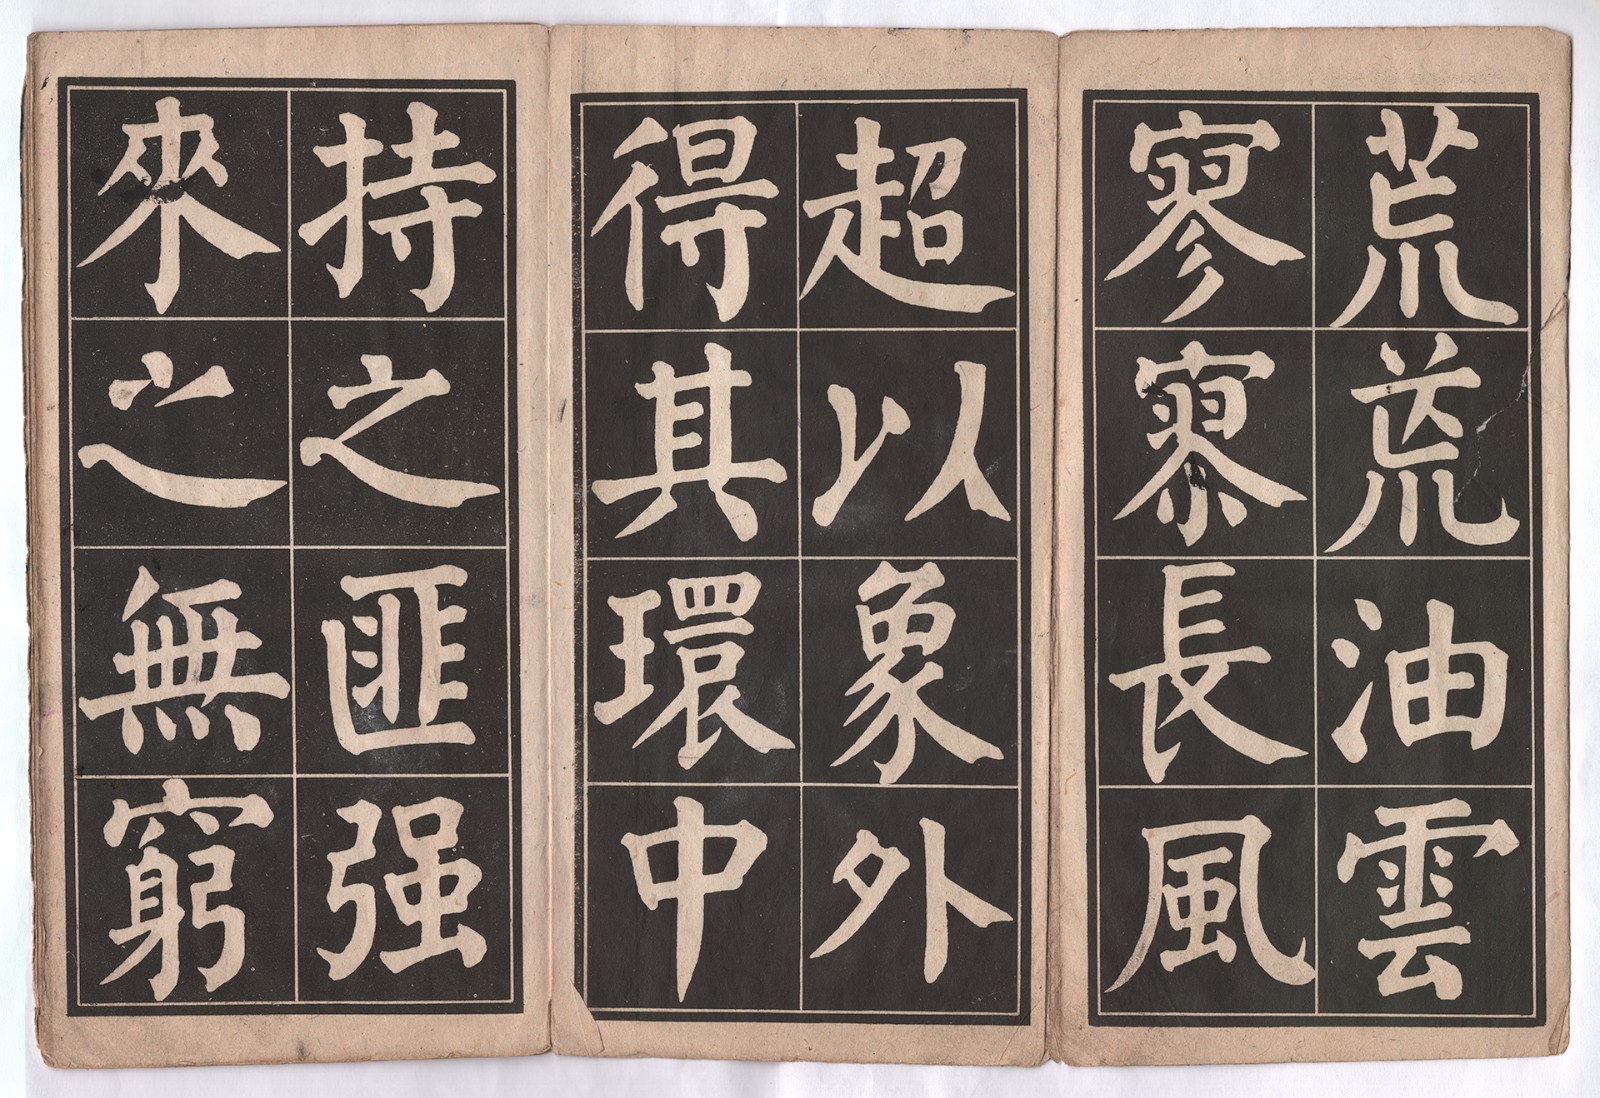 荒荒油雲
寥寥長風
超以象外
得其環中
持之匪强
來之無窮